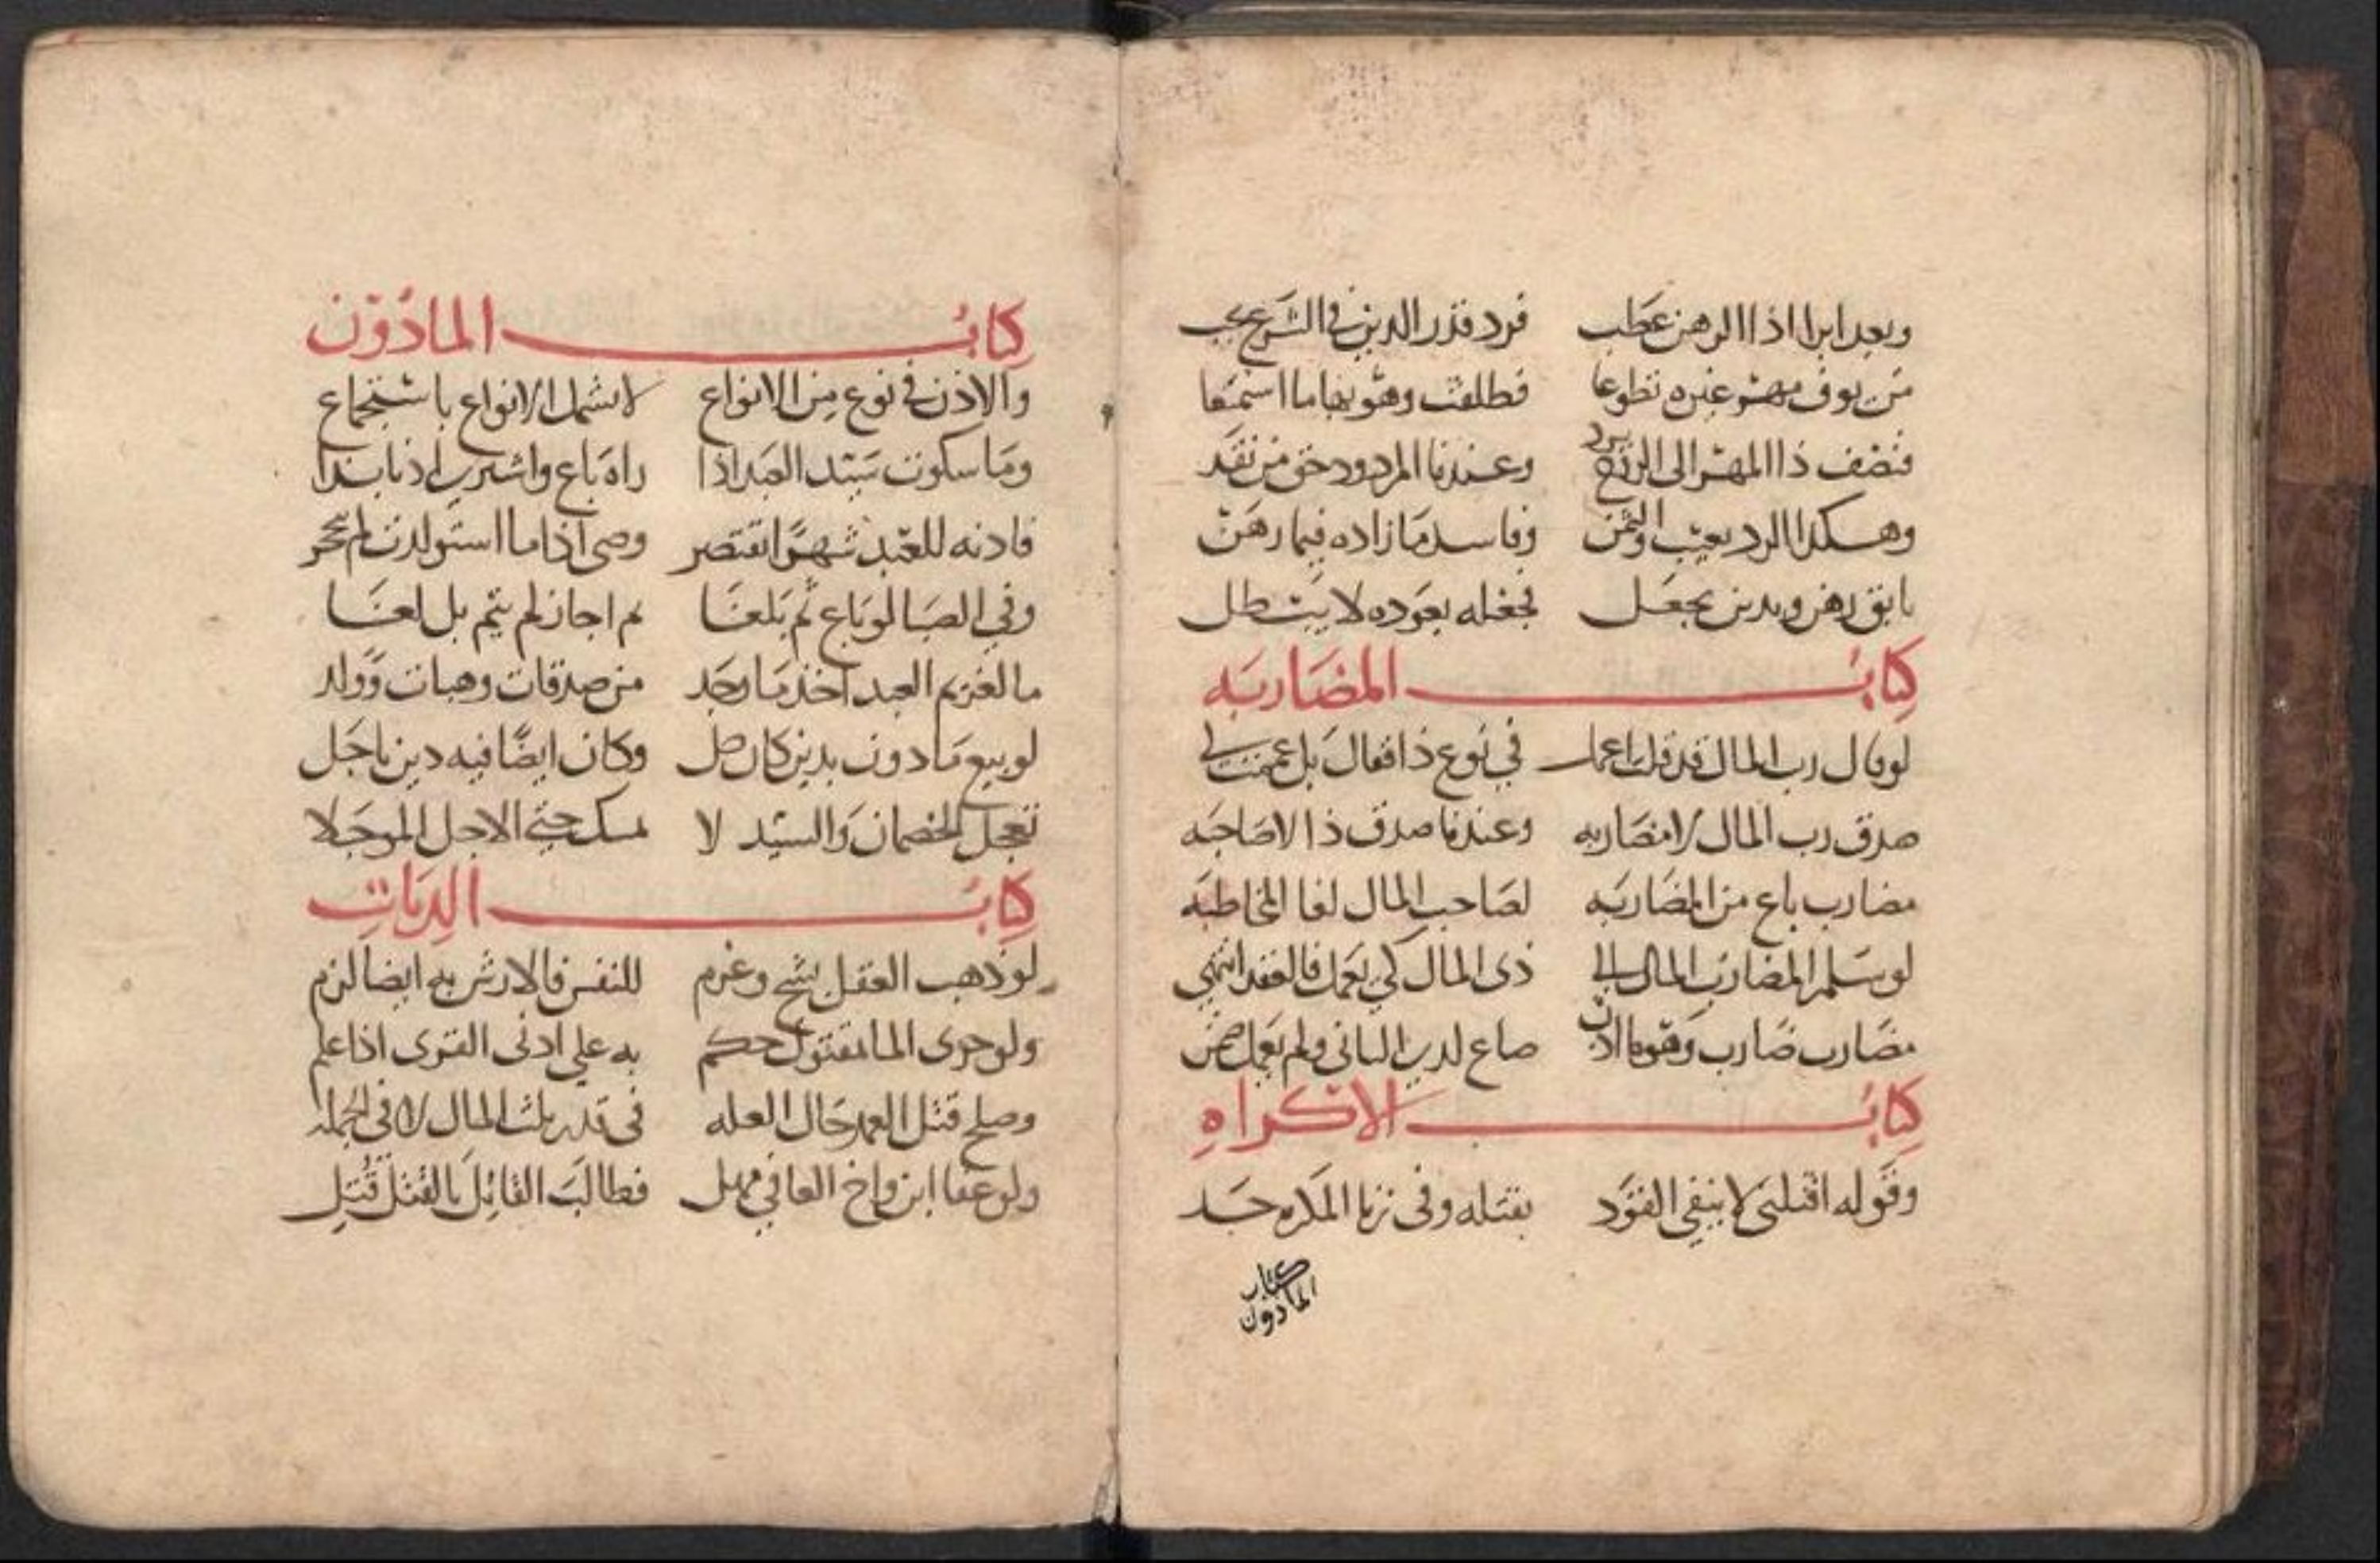 وبعد ابرا اذا الرهن عطب فرد قدر الدين في الشرع يجب
من يوف مهر غيره تطوعا فطلقت وهو بها ما استمتعا
فنصف ذا المهر الى الزوج يرد وعندنا المردود حق من نقد
وهكذا الرد بعيب والثمن وفاسد ما زاده فيما رهن
بابق رهن وبدين يجعل فجعله بعوده لا يبطل
كتاب المضاربه
لو قال رب المال قد قلت اعمل في نوع ذا فقال بل عممت لي
صدق رب المال لا مضاربه وعندنا صدق ذا لا صاحبه
مضارب باع من المضاربه لصاحب المال لغا المخاطبه
لو سلم المضارب المال الى ذى المال كي يعمل فالعقد انتهى
مضارب ضارب وهو ما اذن ضاع لدى الثانى ولم يعمل ضمن
كتاب الاكراه
وقوله اقتلنى لا ينفي القود بقتله وفى زنا المكره حد
كتاب
المادون
كتاب المأذون
والاذن في نوع من الانواع لا يشمل الانواع باستجماع
وما سكوت سيد العبد اذا راه باع واشترى اذنا بذا
فاذنه للعبد شهرا يقتصر وهي اذا ما استولدت لم تحجر
وفي الصبا لو باع ثم بلغا ثم اجاز لم يتم بل لغا
ما لغريم العبد اخذ ما وجد من صدقات وهبات وولد
لو بيع مادون بدين كان حل وكان ايضا فيه دين ناجل
تعجل الخصمان والسيد لا يمسك حتى الاجل الموجلا
كتاب الديات
لو ذهب العقل بشج وغرم للنفس فالارش به ايضا لزم
ولو حوى الما مقتول حكم به على ادنى القرى اذا علم
وصلح قتل العمد حال العله فى قدر ثلث المال لا فى الجمله
ولو عفا ابن واخ العافي جهل فطالب القاتل بالقتل قتل